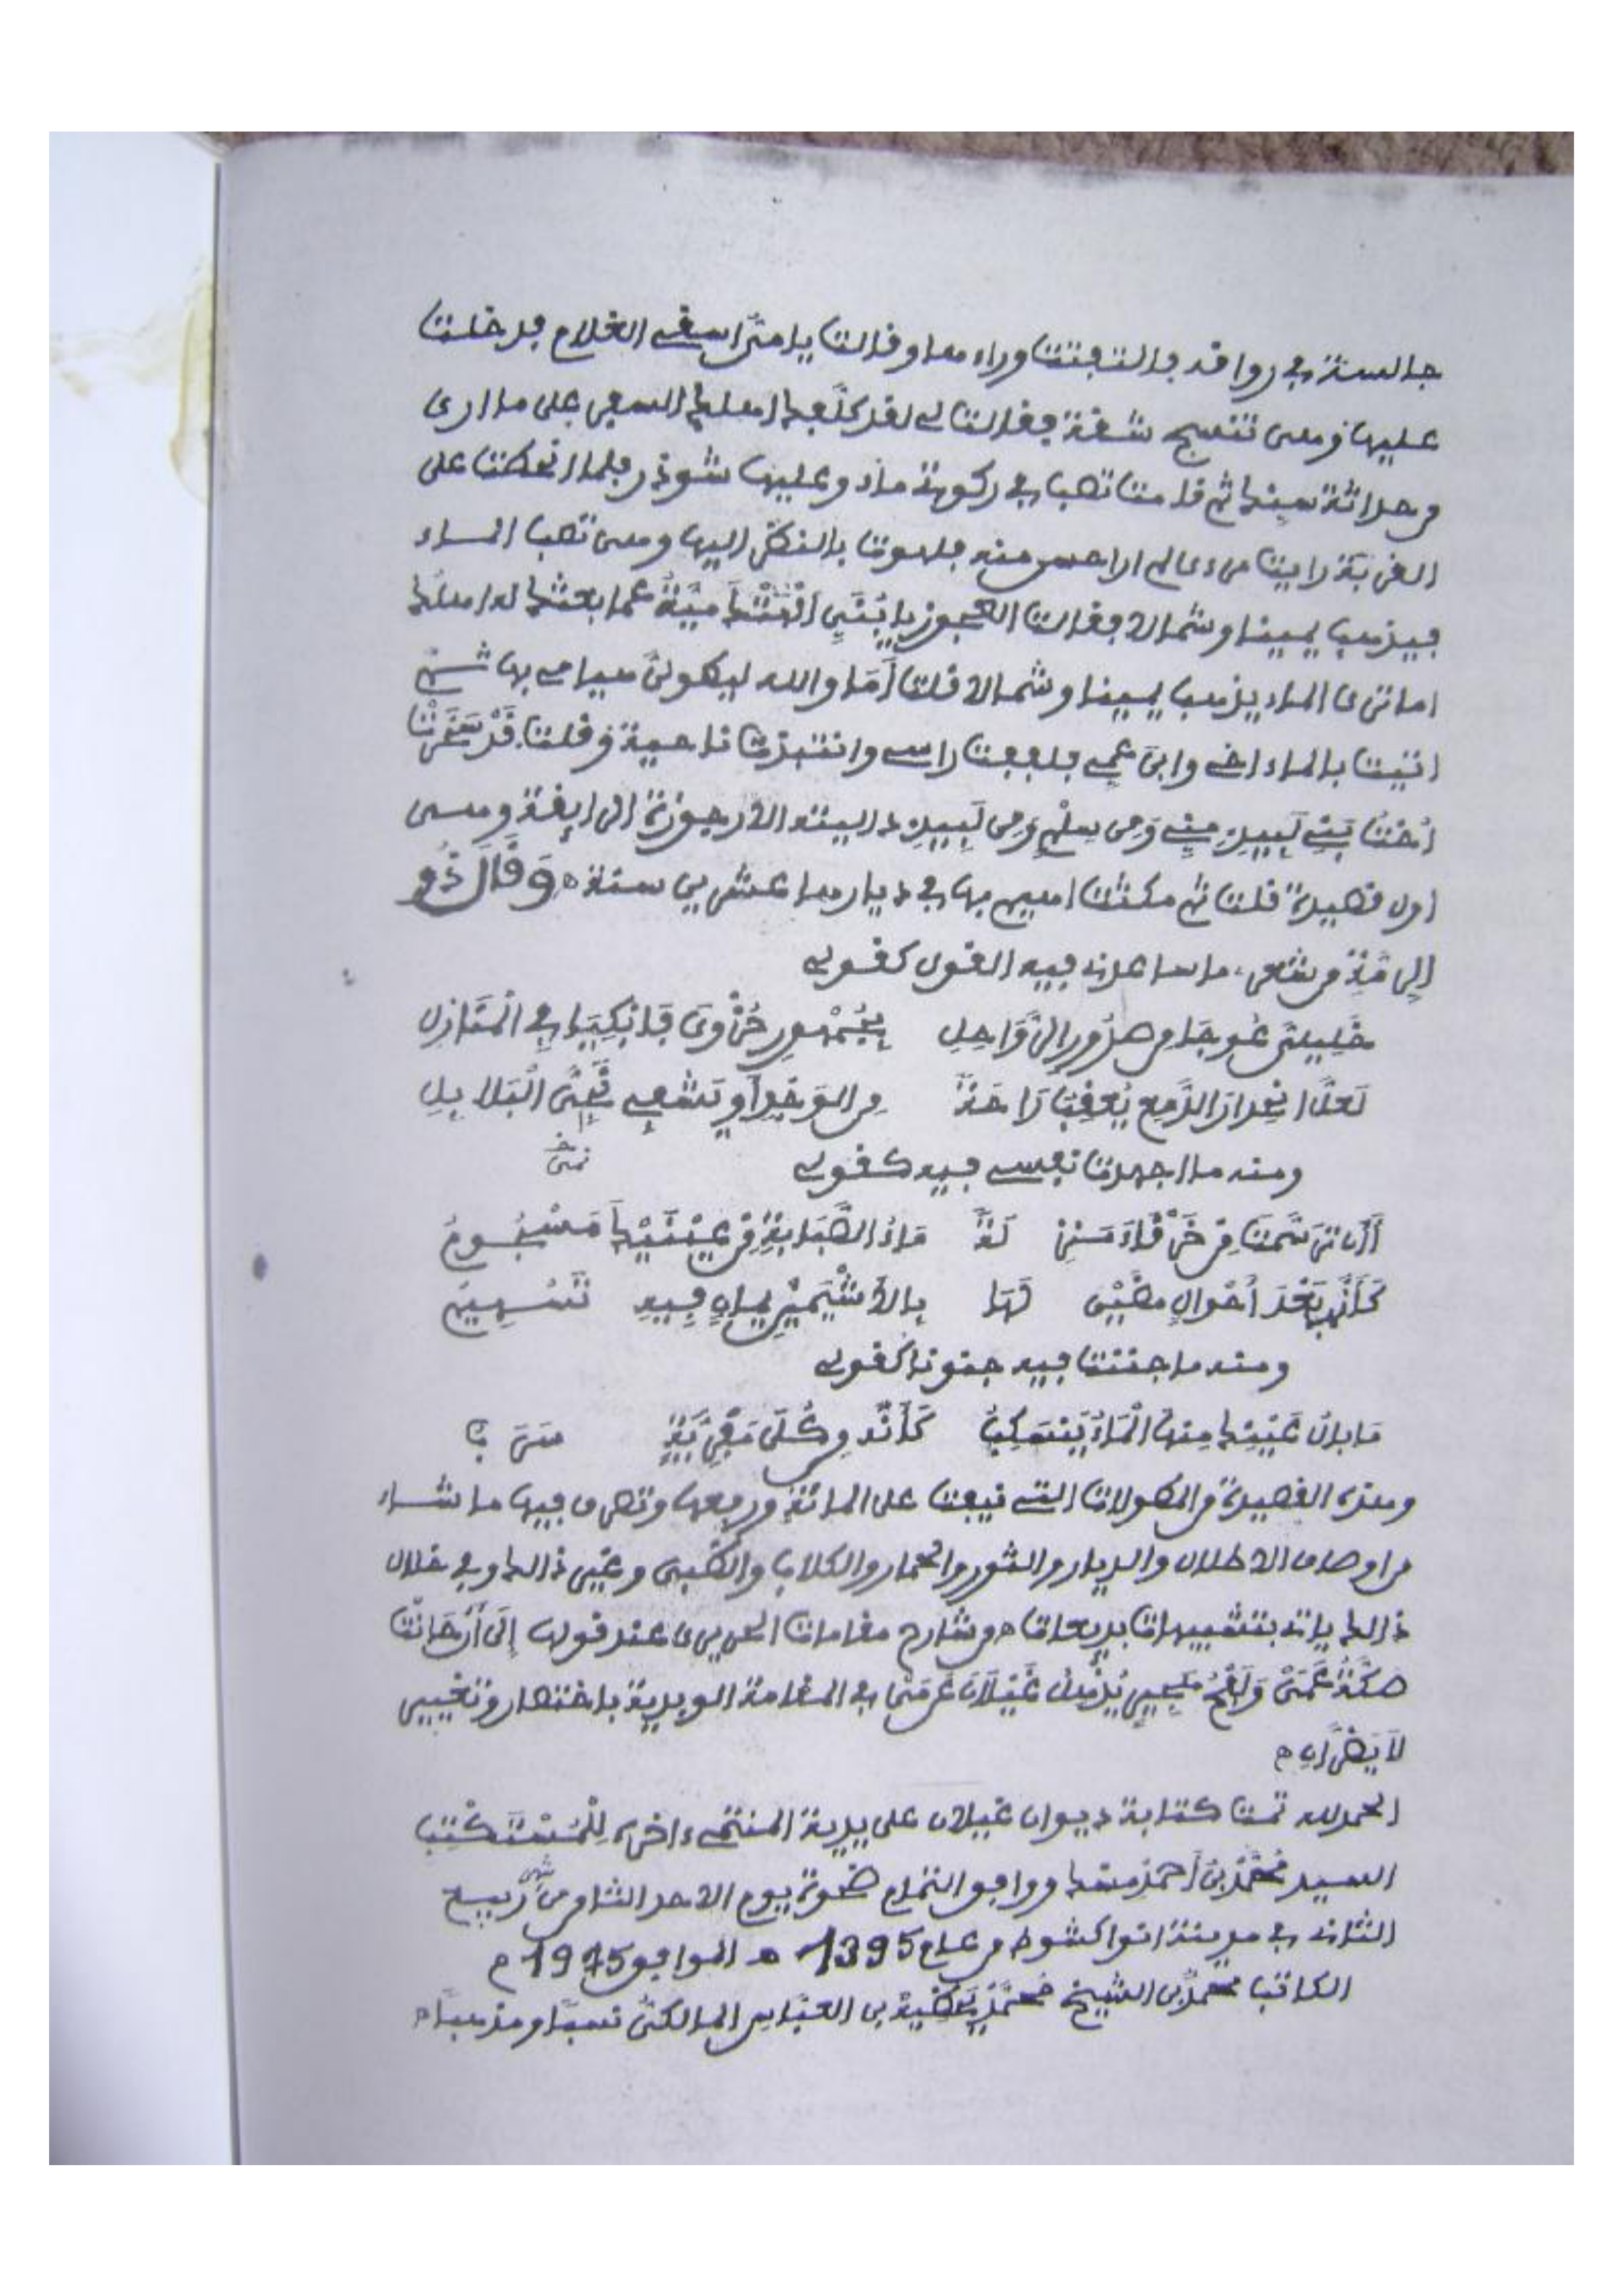 جالسة في رواقه فالتفتت وراءها وقالت يا مي اسقي الغلام فدخلت
عليها وهي تنسج شقة فقالت لي لقد كلفك اهلك السفر على ما ارى
من حداثة سنك ثم قامت تصب في ركوتي ماء وعليها شوذر فلما انحطت على
القربة رايت مرءى لم ار احسن منه فلهوت بالنظر اليها وهي تصب الماء
فيذهب يمينا وشمالا فقالت العجوز يا بُنَيِّ ألْهَتْكَ مَيَّةُ عما بعثك له اهلك
اما ترى الماء يذهب يمينا وشمالا قلت أمَا والله ليطولن هيامي بها ثم
اتيت بالماء اخي وابن عمي فلففت راسي وانتبذت ناحية وقلت قَدْ سَخِرَتْ
أختُ بَنِي لَبِيدِ مِنِّي وَمِن سَلْمٍ وَمِن لَبِيدِ رايت الارجوزة الى اخرها وهي
اول قصيدة قلت ثم مكثت اهيم بها في ديارها عشرين سنة ه وَقَالَ ذُو
الرمة من شعري ما ساعدني فيه القول كقولي
خَلِيلَيَّ عُوجَا مِن صدُورِ الرَّوَاحِلِ بِجُمْهُورِ حُزْوَى فَابْكِيَا فِي الْمَنَازِلِ
لَعَلَّ انْحِدَارَ الدَّمعِ يُعْقِبُ رَاحَةً مِن الوَجْدِ أو يَشْفِي نَجِيَّ الْبَلَابِلِ
ومنه ما اجهدت نفسي فيه كقولي
أأن تَرَسَّمْتَ مِن خَرْقَاءَ مَنزِلَةً مَاءُ الصَّبَابَةِ مِن عَيْنَيْكَ مَسْجُومُ
كَأَنَّهَا بَعْدَ أحْوَالٍ مَضَيْنَ لَهَا بِالأَشْيَمَيْنِ يَمَانٍ فِيهِ تَسْهِيمُ
ومنه ما جننت فيه جنونا كقولي
مَا بالُ عَيْنِكَ مِنهَا الْمَاءُ يَنسَكِبُ كَأَنَّهُ مِن كُلَى مَفْرِيَّةٍ سَرَبُ
وهذه القصيدة من المطولات التي نيفت على المائة وربعها وتصرف فيها ما شاء
من اوصاف الاطلال والديار والثور والحمار والكلاب والظبي وغير ذالك وفي خلال
ذالك ياتي بتشبيهات بديعات ه من شارح مقامات الحريري عند قوله إلى أن حَانَتْ
صَكَّةُ عُمَيّ وَلَفْحُ هَجِيرٍ يُذْهِلُ غَيْلَانَ عَن مَيّ في المقامة الوبرية باختصار وتغيير
لا يَضُرَّانِ ه
الحمد لله تمت كتابة ديوان غيلان على يدي المنتمي ءاخره لِلْمُسْتَكْتِبِ
السيد مُحَمَّذِن أحمذ ووافق التمام ضحوة يوم الاحد الثامن من شهر ربيع
الثاني في مدينة انواكشوط من عام 1395 ه الموافق 1975 م
الكاتب محمد بن الشيخ محمذ بن العباس المالكي نسبا ومذهبا ه